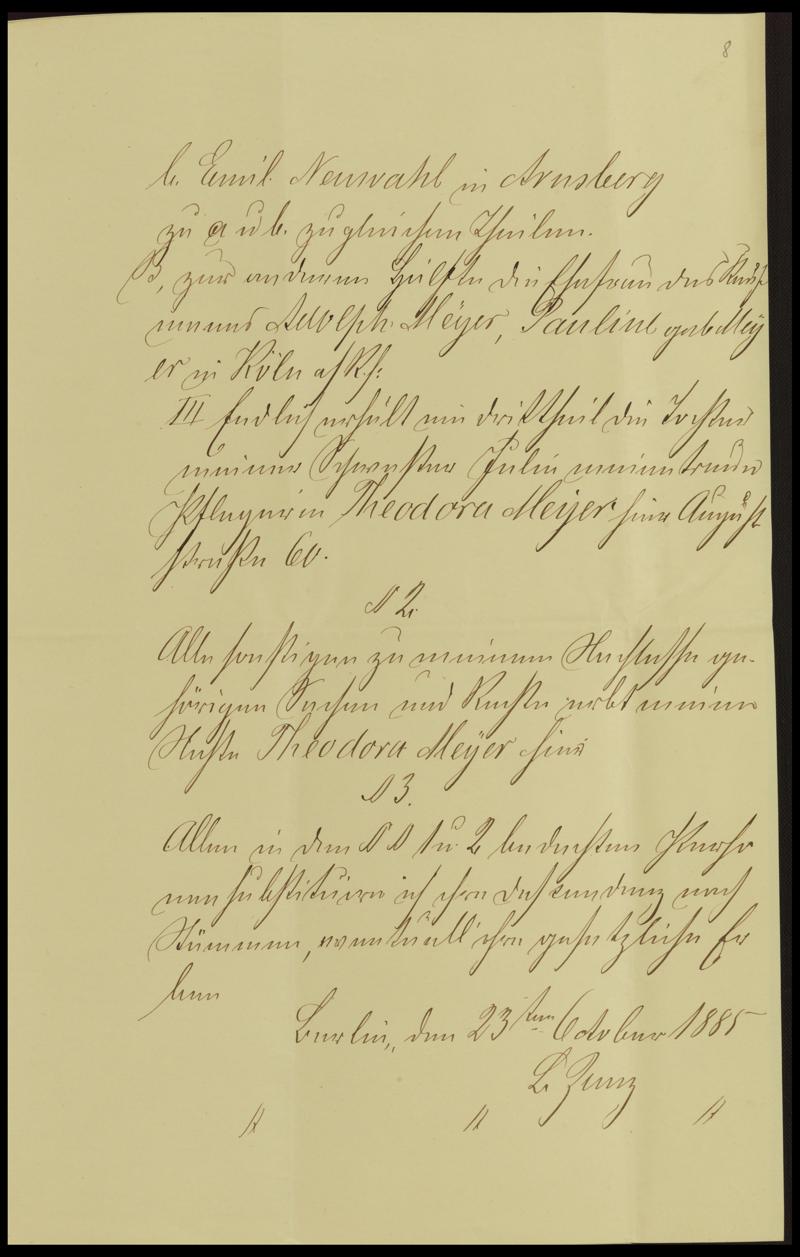 8
b. Emil Neuwahl in Arnsberg
zu a u b. zu gleichen Theilen.
B, zur anderen Hälfte die Ehefrau des Kauf
manns Adolph Meÿer, Pauline geb Meÿ
er in Köln a/Rh:
III Endlich erhält ein Drittheil die Tochter
meiner Schwester Julie meine treue
Pflegerin Theodora Meÿer hier August
straße 60.
§ 2.
Alle sonstigen zu meinem Nachlasse ge-
hörigen Sachen und Rechte erbt meine
Nichte Theodora Meÿer hier
§ 3.
Allen in den §§ 1 u. 2 bedachten Perso
nen substituire ich ihre Descendenz nach
Stämmen, eventuell ihre gesetzlichen Er
ben
Berlin, den 23ten October 1885
L. Zunz